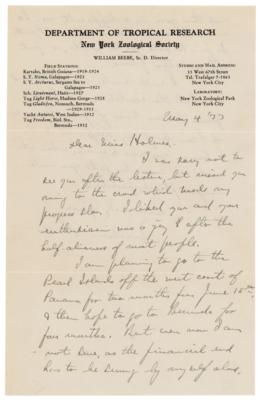 DEPARTMENT OF TROPICAL RESEARCH
New York Zoological Society
WILLIAM BEEBE, Sc. D. Director
FIELD STATIONS:
Kartabo, British Guiana—1919-1924
S. Y. Noma, Galapagos—1923
S. Y. Arcturus, Sargasso Sea to
Galapagos—1925
Sch. Lieutenant, Haiti—1927
Tug Light Horse, Hudson Gorge—1928
Tug Gladisfen, Nonsuch, Bermuda
—1929-1931
Yacht Antares, West Indies—1932
Tug Freedom, Biol. Sta.,
Bermuda—1932
STUDIO AND MAIL ADDRESS:
33 West 67th Street
Tel. Trafalgar 7-1945
New York City
LABORATORY:
New York Zoological Park
New York City
May 4 '33
Dear Miss Holmes.
I was sorry not to
see you after the lecture, but missed you
owing to the crowd which made my
progress slow. I liked you and your
enthusiasm was a joy & after the
half-aliveness of most people.
I am planning to go to the
Pearl Islands off the west coast of
Panama for two months from June 15th
& then hope to go to Bermuda for
four months. But even now I am
not sure, as the financial end
has to be swung by myself alone.